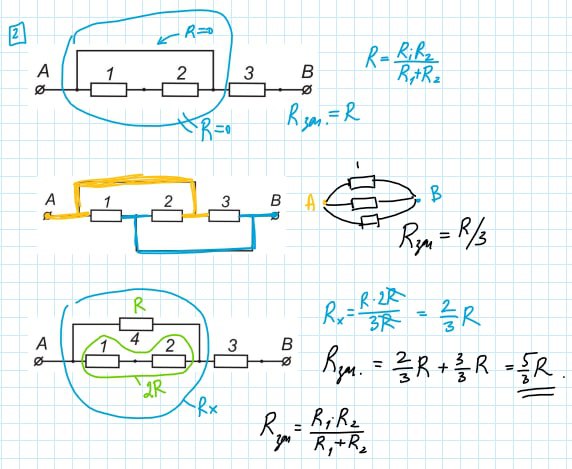 2
R=0
A 1 2 3 B
R=0
R = R₁·R₂ / R₁+R₂
Rзm. = R
A 1 2 3 B
A 1 B
Rзm = R/3
R
A 1 4 2 3 B
2R
Rx
Rx = R·2R / 3R = 2/3 R
Rзm. = 2/3 R + 3/3 R = 5/3 R.
Rзm = R₁·R₂ / R₁+R₂